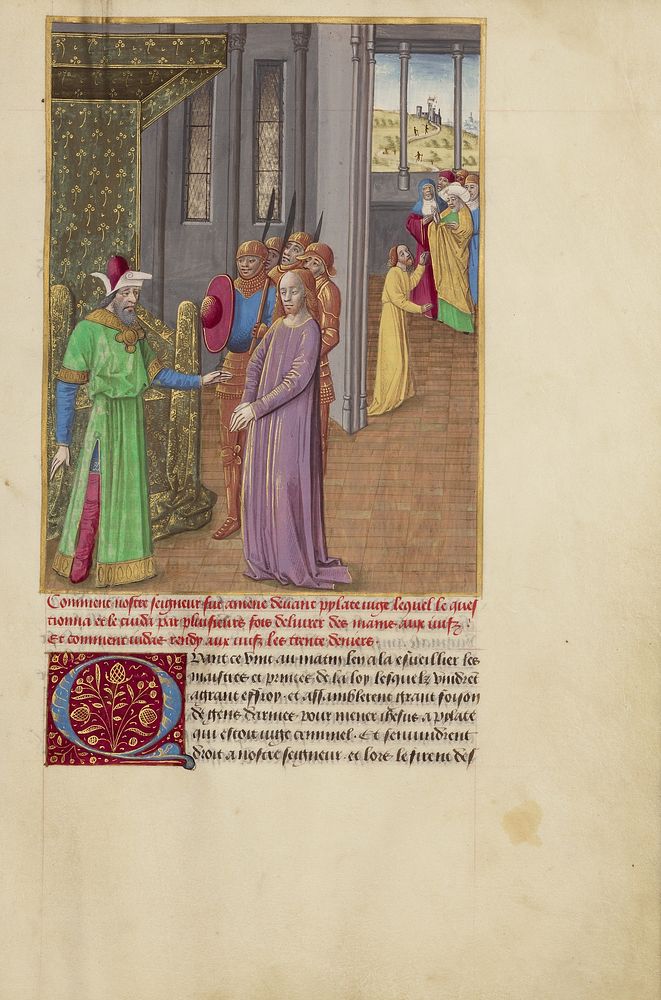 Comment nostre seigneur fut amene devant pylate iuge lequel le ques
tionna et le cuida par pluiseurs fois delivrer des mains aux iuifz
Et comment iudas rendy aux iuifz les trente deniers
Quant ce vint au matin len ala esueillier les
maistres et princes de la loy lesquelz vindrent
a grant effroy et assamblerent grant foison
de gens darmes pour mener ihesus a pylate
qui estoit iuge criminel Et sen vindrent
droit a nostre seigneur et lors le firent des